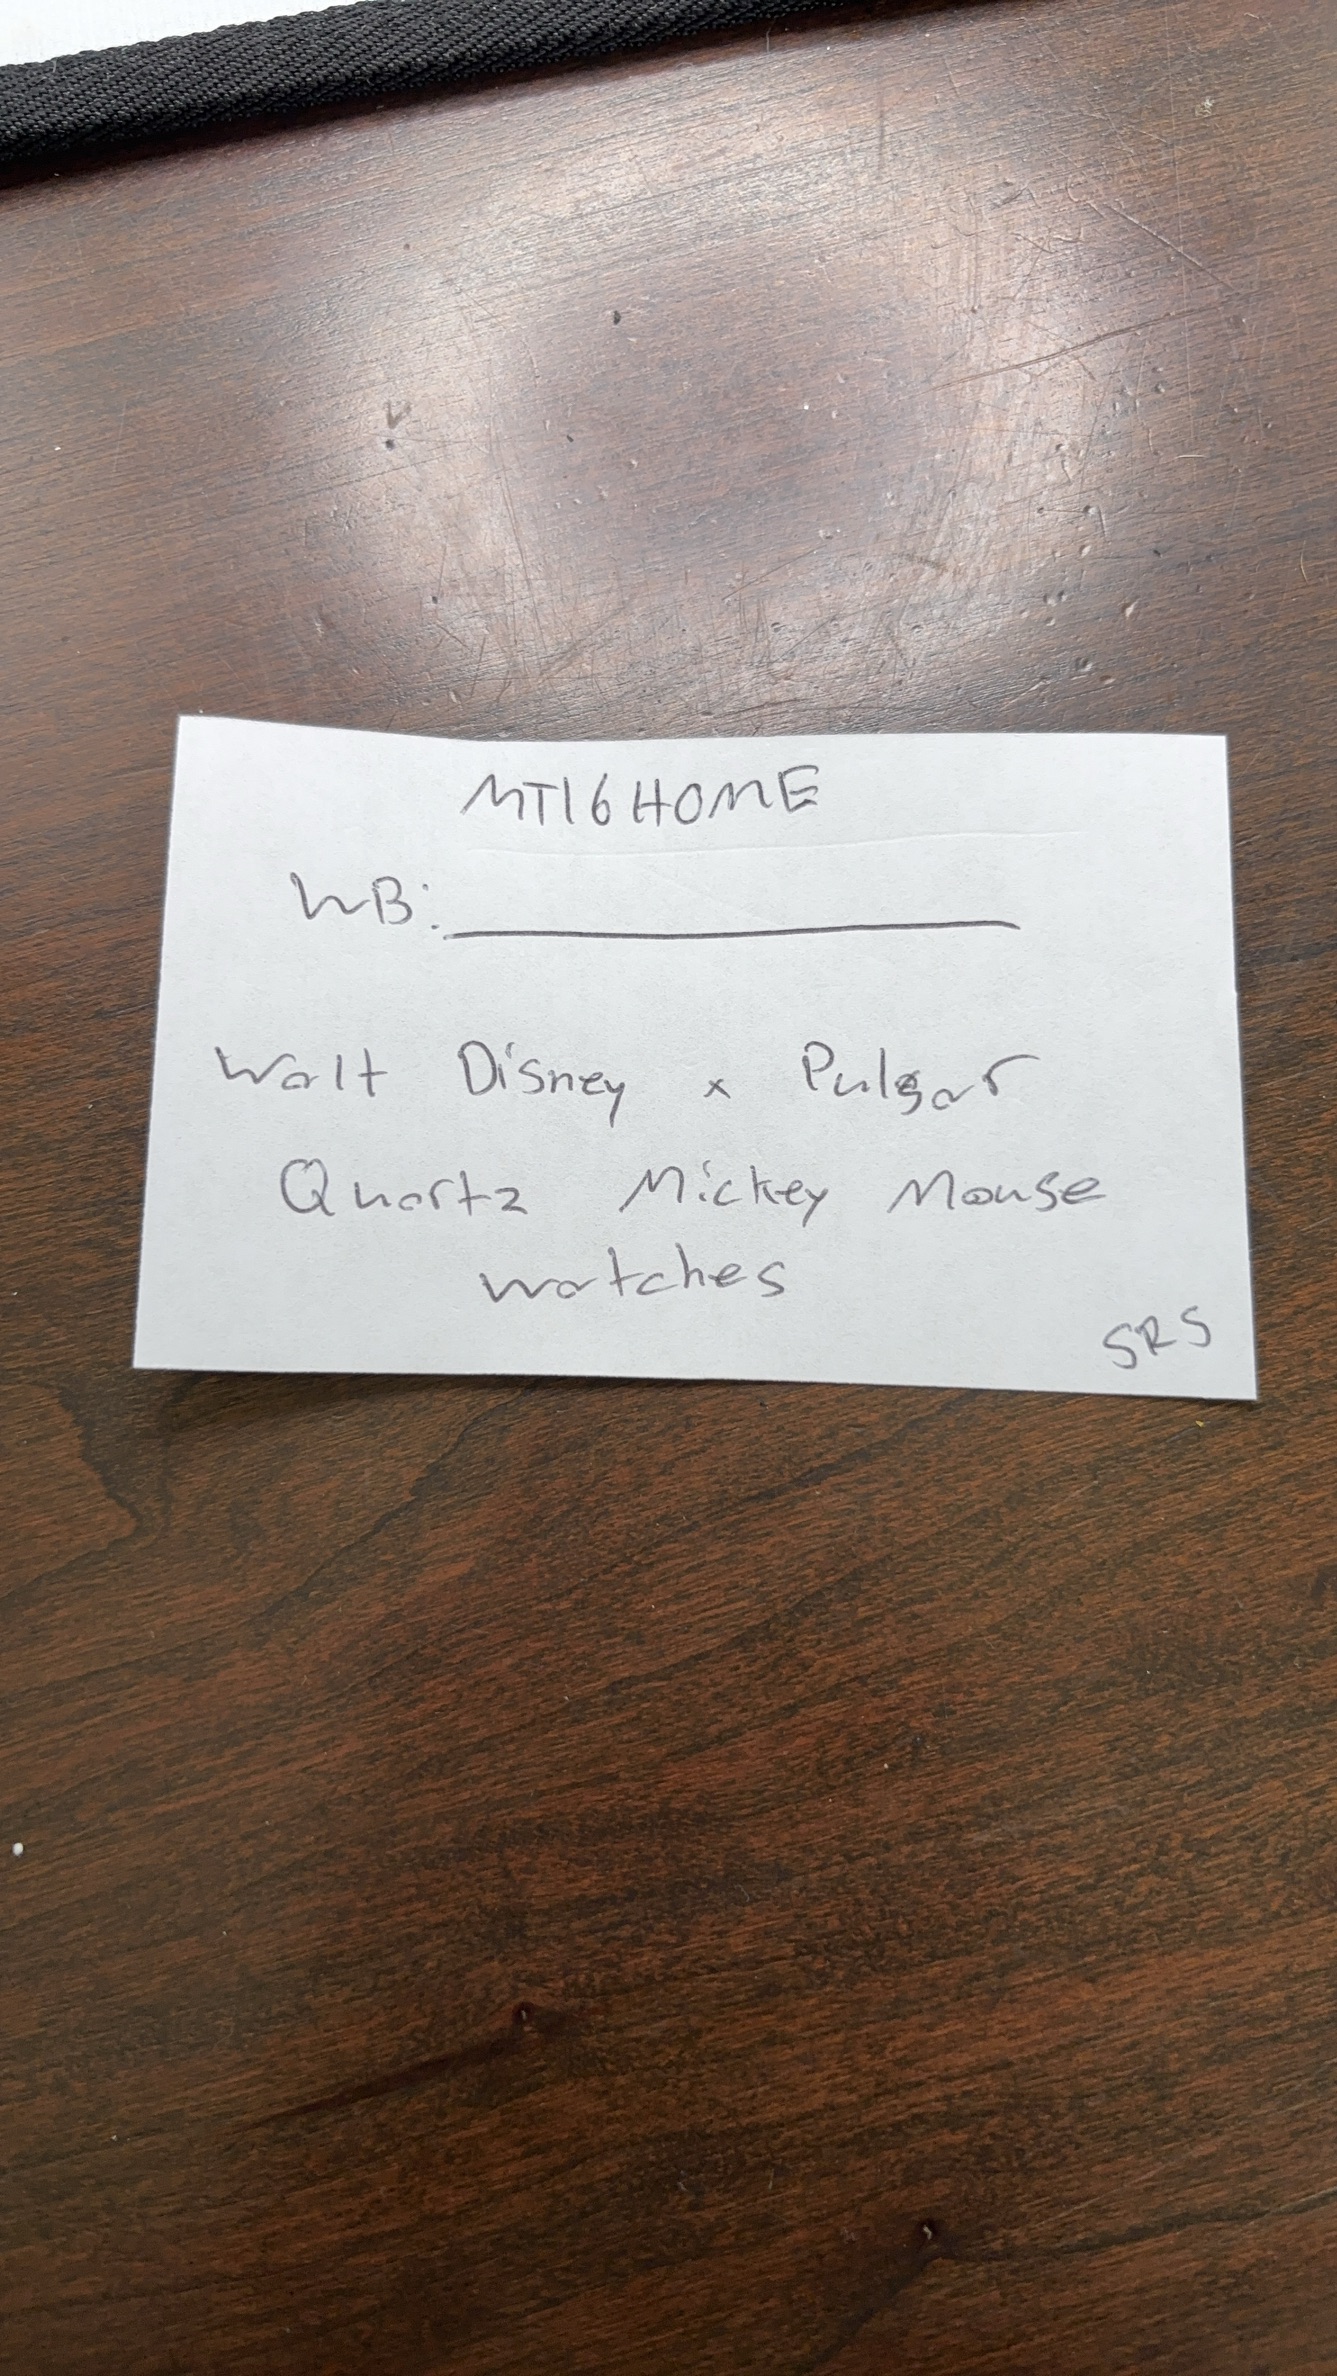 MT16HOME
WB:
Walt Disney x Pulsar
Quartz Mickey Mouse
watches
SRS